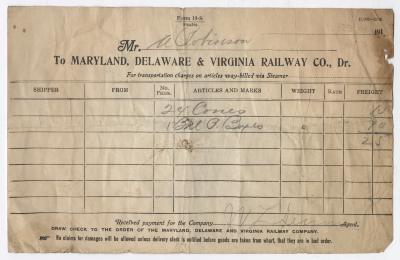 Form 19-S
Mr. Robinson 191
To MARYLAND, DELAWARE & VIRGINIA RAILWAY CO., Dr.
For transportation charges on articles way-billed via Steamer
SHIPPER FROM No. Pkgs. ARTICLES AND MARKS WEIGHT RATE FREIGHT
24
1
25
Received payment for the Company Agent.
DRAW CHECK TO THE ORDER OF THE MARYLAND, DELAWARE AND VIRGINIA RAILWAY COMPANY.
No claims for damages will be allowed unless delivery clerk is notified before goods are taken from wharf, that they are in bad order.